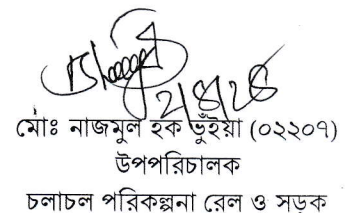 ২/৪/২৪
মোঃ নাজমুল হক ভুঁইয়া (০২২০৭)
উপপরিচালক
চলাচল পরিকল্পনা রেল ও সড়ক